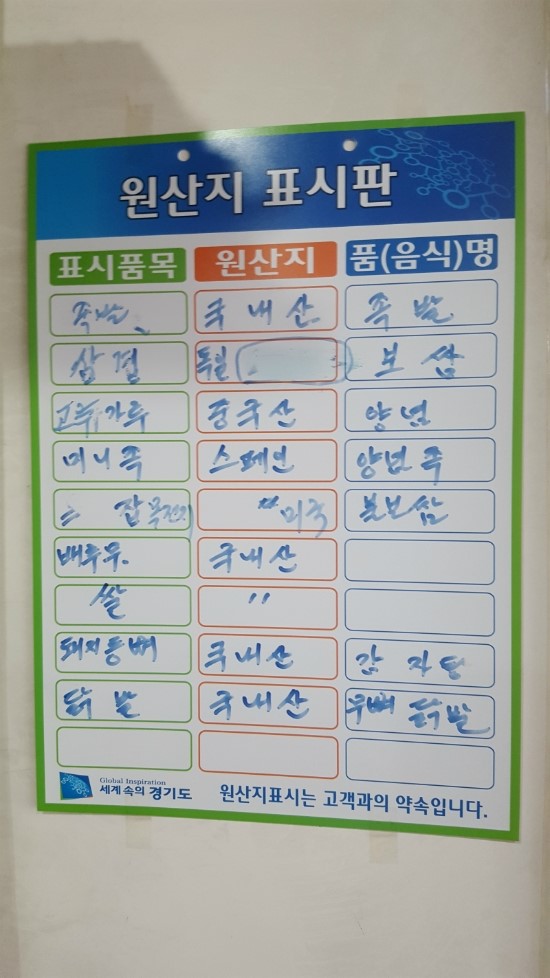 원산지 표시판
표시품목 원산지 품(음식)명
족발 국내산 족발
삼겹 독일 보쌈
고추가루 중국산 양념
미니족 스페인 양념족
〃 미국 불보쌈
배추 국내산
쌀 〃
돼지등뼈 국내산 감자탕
닭발 국내산 무뼈닭발
Global Inspiration
세계속의 경기도 원산지표시는 고객과의 약속입니다.